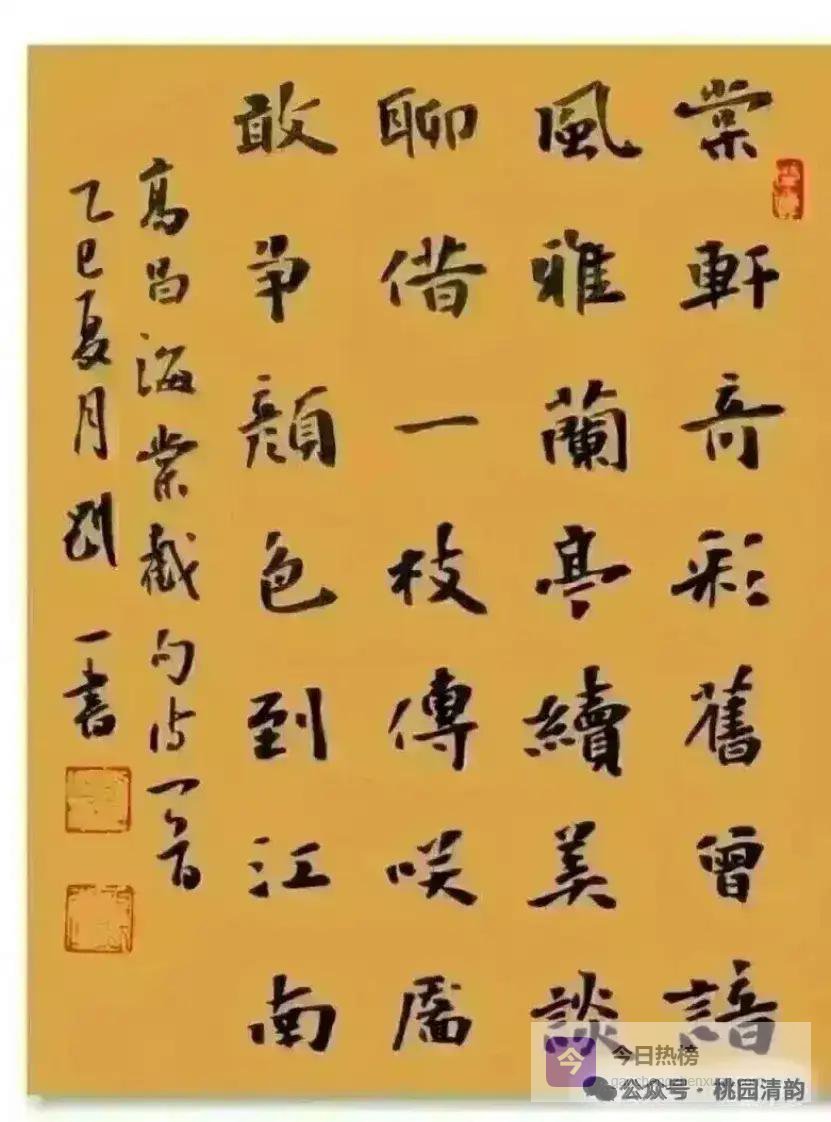 棠軒奇彩舊曾諳
風雅蘭亭續美談
聊借一枝傳咲靨
敢争顔色到江南
高昌海棠截句詩一首
乙巳夏月劉一書
今 今日热榜
公众号·桃园清韵